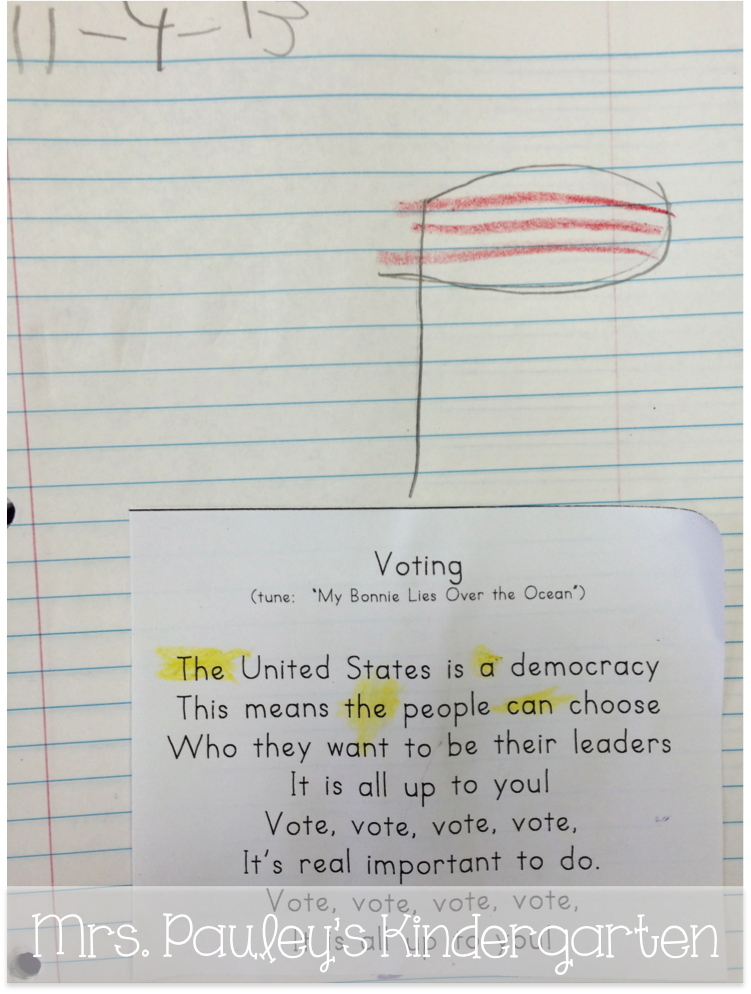 11-4-13
Voting
(tune: "My Bonnie Lies Over the Ocean")
The United States is a democracy
This means the people can choose
Who they want to be their leaders
It is all up to you!
Vote, vote, vote, vote,
It's real important to do.
Vote, vote, vote, vote,
It is all up to you!
Mrs. Pauley's Kindergarten